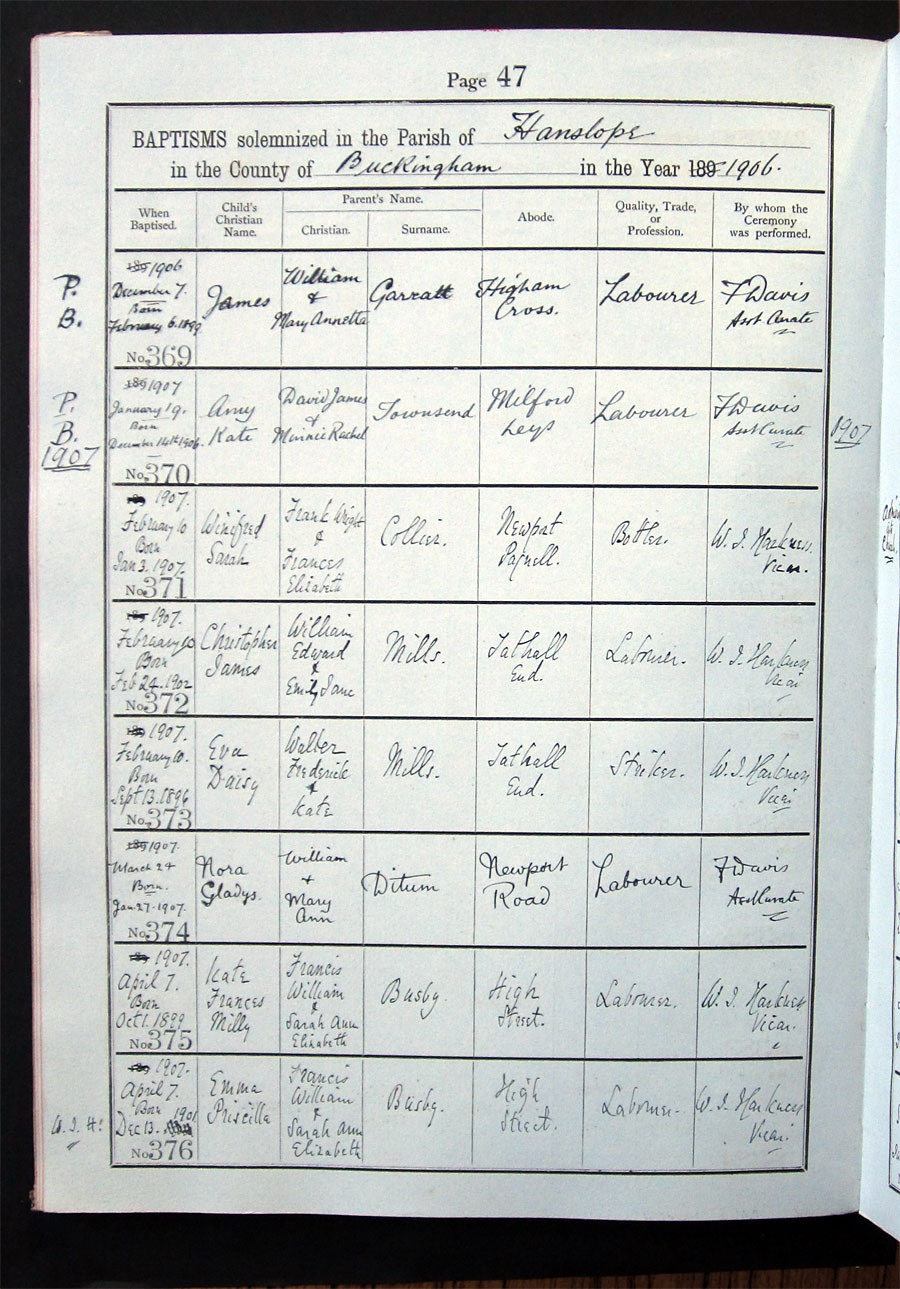 Page 47
BAPTISMS solemnized in the Parish of Hanslope
in the County of Buckingham in the Year 189 1906.
When Baptised.
Child's Christian Name.
Parent's Name.
Christian.
Surname.
Abode.
Quality, Trade, or Profession.
By whom the Ceremony was performed.
P.
B.
189 1906
December 7.
Born
February 6. 1899
No. 369
James
William
&
Mary Annetta
Garratt
Higham
Cross.
Labourer
F Davis
Asst Curate
P.
B.
1907
189 1907
January 19.
Born
December 14th 1906.
No. 370
Amy
Kate
David James
&
Minnie Rachel
Townsend
Milford
Leys
Labourer
F Davis
Asst Curate
1907
189 1907.
February 10
Born
Jan 3. 1907.
No. 371
Winifred
Sarah
Frank Wright
&
Frances
Elizabeth
Collier.
Newport
Pagnell.
W. J. Harkness.
Vicar.
189 1907.
February 10
Born
Feb 24. 1902
No. 372
Christopher
James
William
Edward
&
Emily Jane
Mills.
Tathall
End.
Labourer.
W. J. Harkness
Vicar
189 1907.
February 10.
Born
Sept 13. 1896
No. 373
Eva
Daisy
Walter
Frederick
&
Kate
Mills.
Tathall
End.
Striker.
W. J. Harkness
Vicar
189 1907.
March 24
Born.
Jan 27. 1907.
No. 374
Nora
Gladys.
William
+
Mary
Ann
Ditum
Newport
Road
Labourer
F Davis
Asst Curate
189 1907.
April 7.
Born
Oct 1. 1899
No. 375
Kate
Frances
Milly
Francis
William
&
Sarah Ann
Elizabeth
Busby.
High
Street.
Labourer.
W. J. Harkness
Vicar.
W. J. H.
189 1907.
April 7.
Born
Dec 13. 1901
No. 376
Emma
Priscilla
Francis
William
&
Sarah Ann
Elizabeth
Busby.
High
Street.
Labourer.
W. J. Harkness
Vicar.